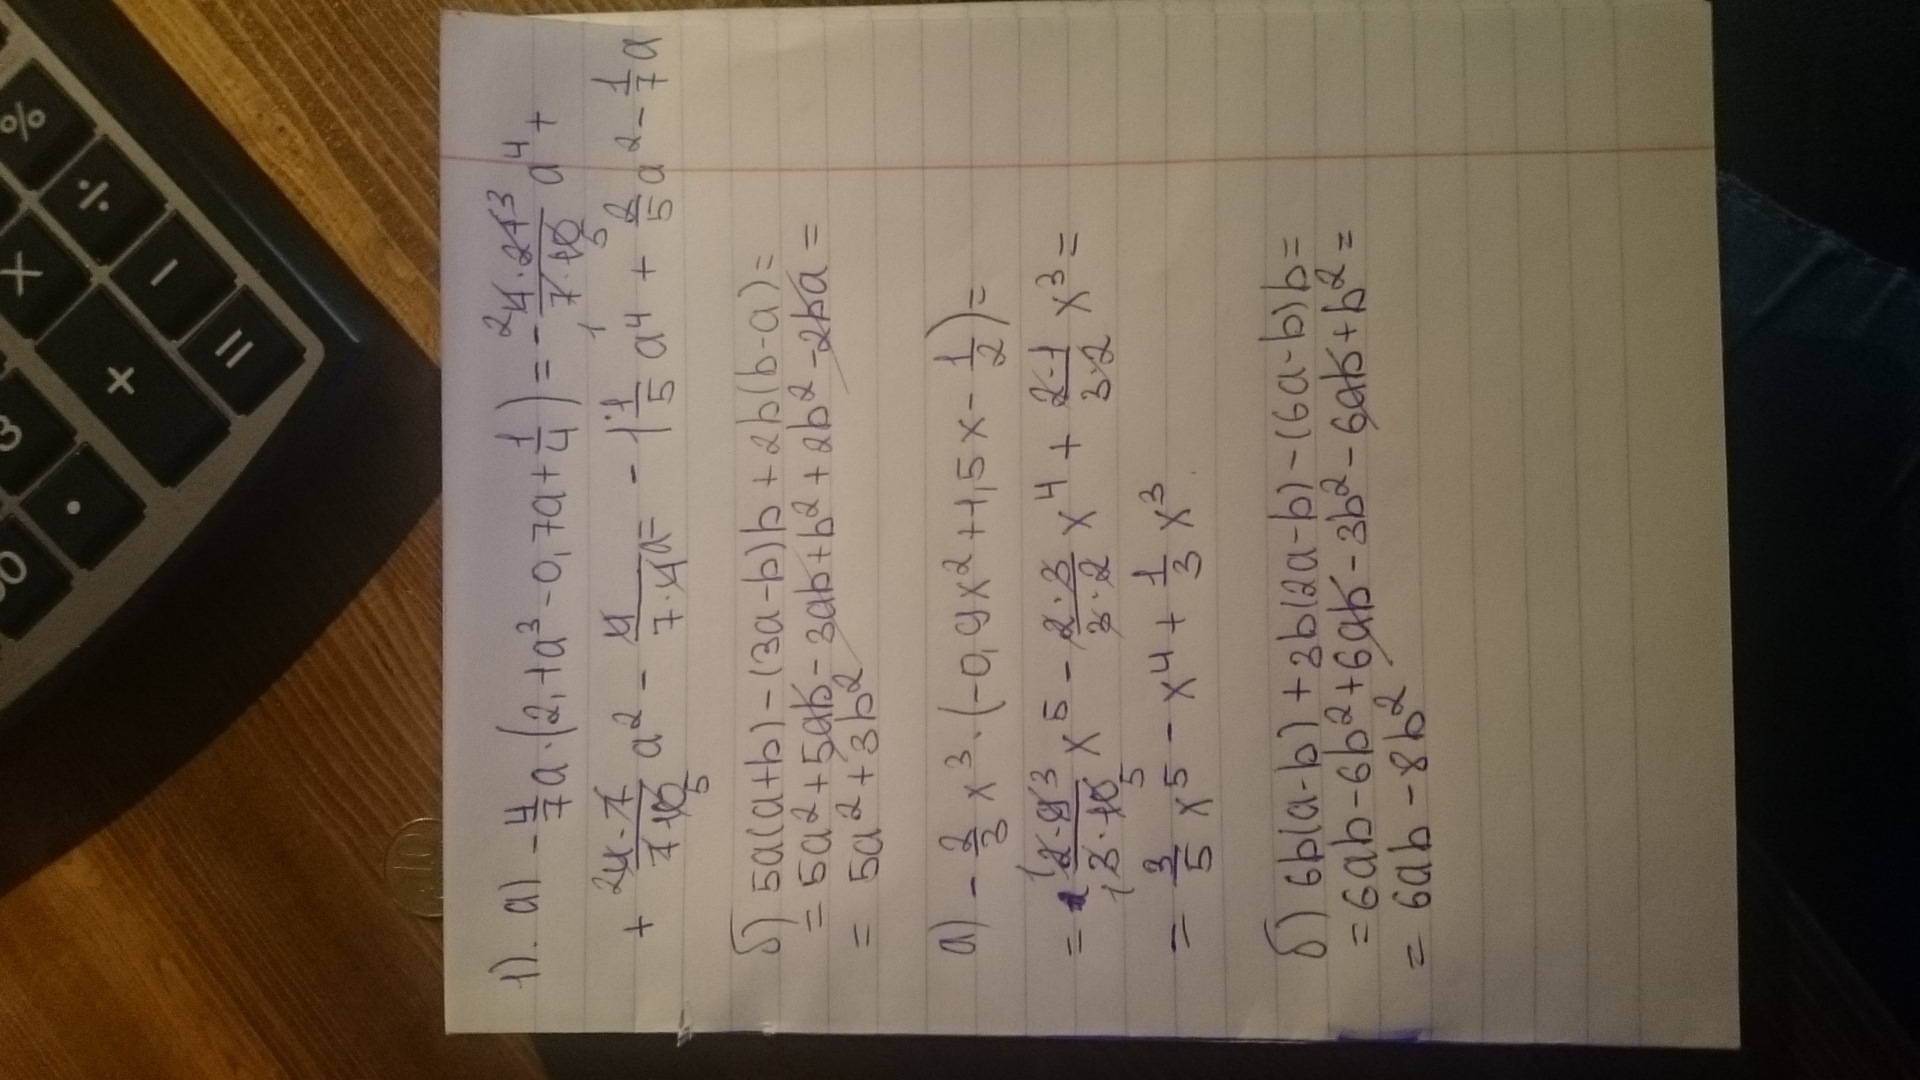 1). а) -4/7 a·(2,1a³-0,7a+1/4)=-4·21/7·10 a⁴+
+4·7/7·10 a²-4/7·4 a=-1 1/5 a⁴+2/5 a²-1/7 a
б) 5a(a+b)-(3a-b)b+2b(b-a)=
=5a²+5ab-3ab+b²+2b²-2ba=
=5a²+3b²
а) -2/3 x³·(-0,9x²+1,5x-1/2)=
=2·9/3·10 x⁵-2·3/3·2 x⁴+2·1/3·2 x³=
=3/5 x⁵-x⁴+1/3 x³.
б) 6b(a-b)+3b(2a-b)-(6a-b)b=
=6ab-6b²+6ab-3b²-6ab+b²=
=6ab-8b²
%
÷
×
-
+
=
3
.